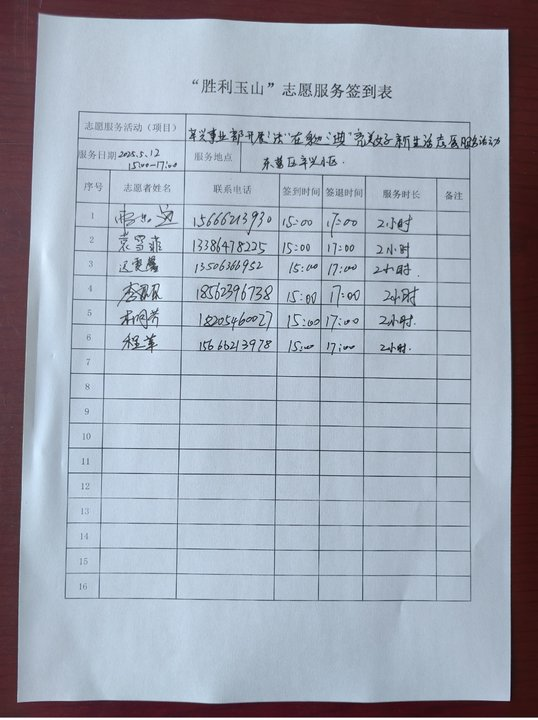 “胜利玉山”志愿服务签到表
志愿服务活动（项目） 辛兴事业部开展“法”在身边“典”亮美好新生活志愿服务活动
服务日期 2025.5.12 15:00-17:00 服务地点 东营区辛兴小区
序号 志愿者姓名 联系电话 签到时间 签退时间 服务时长 备注
1 15666213930 15:00 17:00 2小时
2 13386478225 15:00 17:00 2小时
3 13506366952 15:00 17:00 2小时
4 18562396738 15:00 17:00 2小时
5 18205460027 15:00 17:00 2小时.
6 程革 15666213978 15:00 17:00 2小时.
7
8
9
10
11
12
13
14
15
16